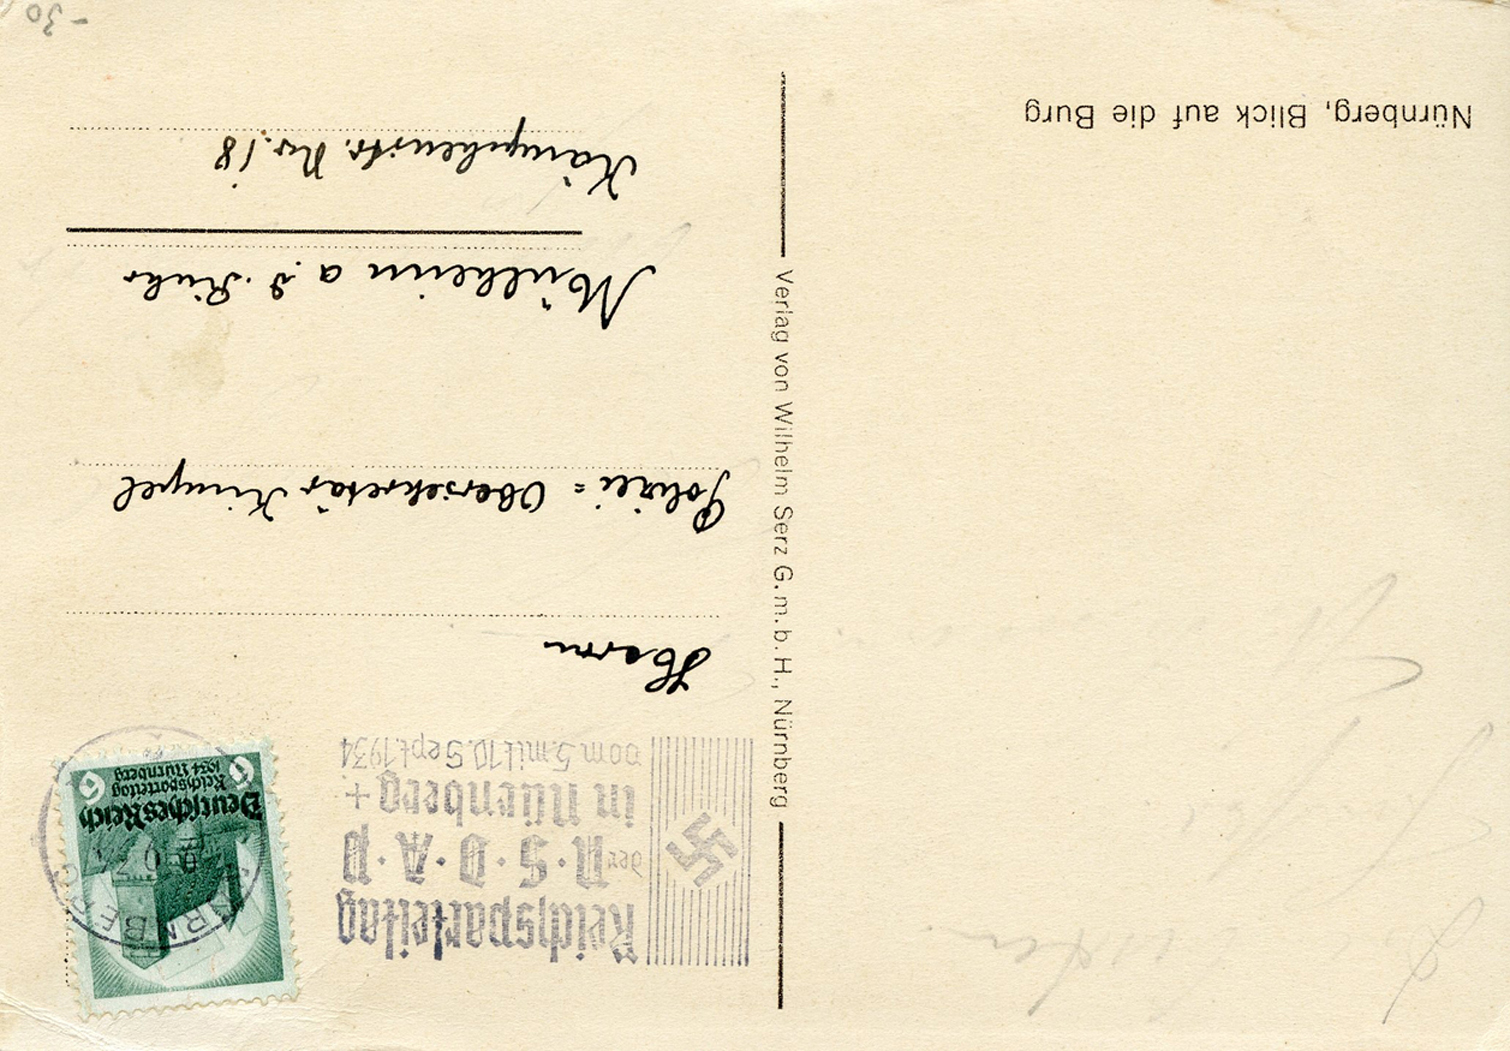 Nürnberg, Blick auf die Burg
Verlag von Wilhelm Serz G.m.b.H., Nürnberg
Reichsparteitag
der N·S·D·A·P
in Nürnberg +
vom 5. mit 10. Sept. 1934
NÜRNBERG
Deutsches Reich
Reichsparteitag
1934 Nürnberg
6 6
Herrn
Polizei = Obersekretär Kimpel
Mülheim a. d. Ruhr
Kämpchenstr. No. 18
-30